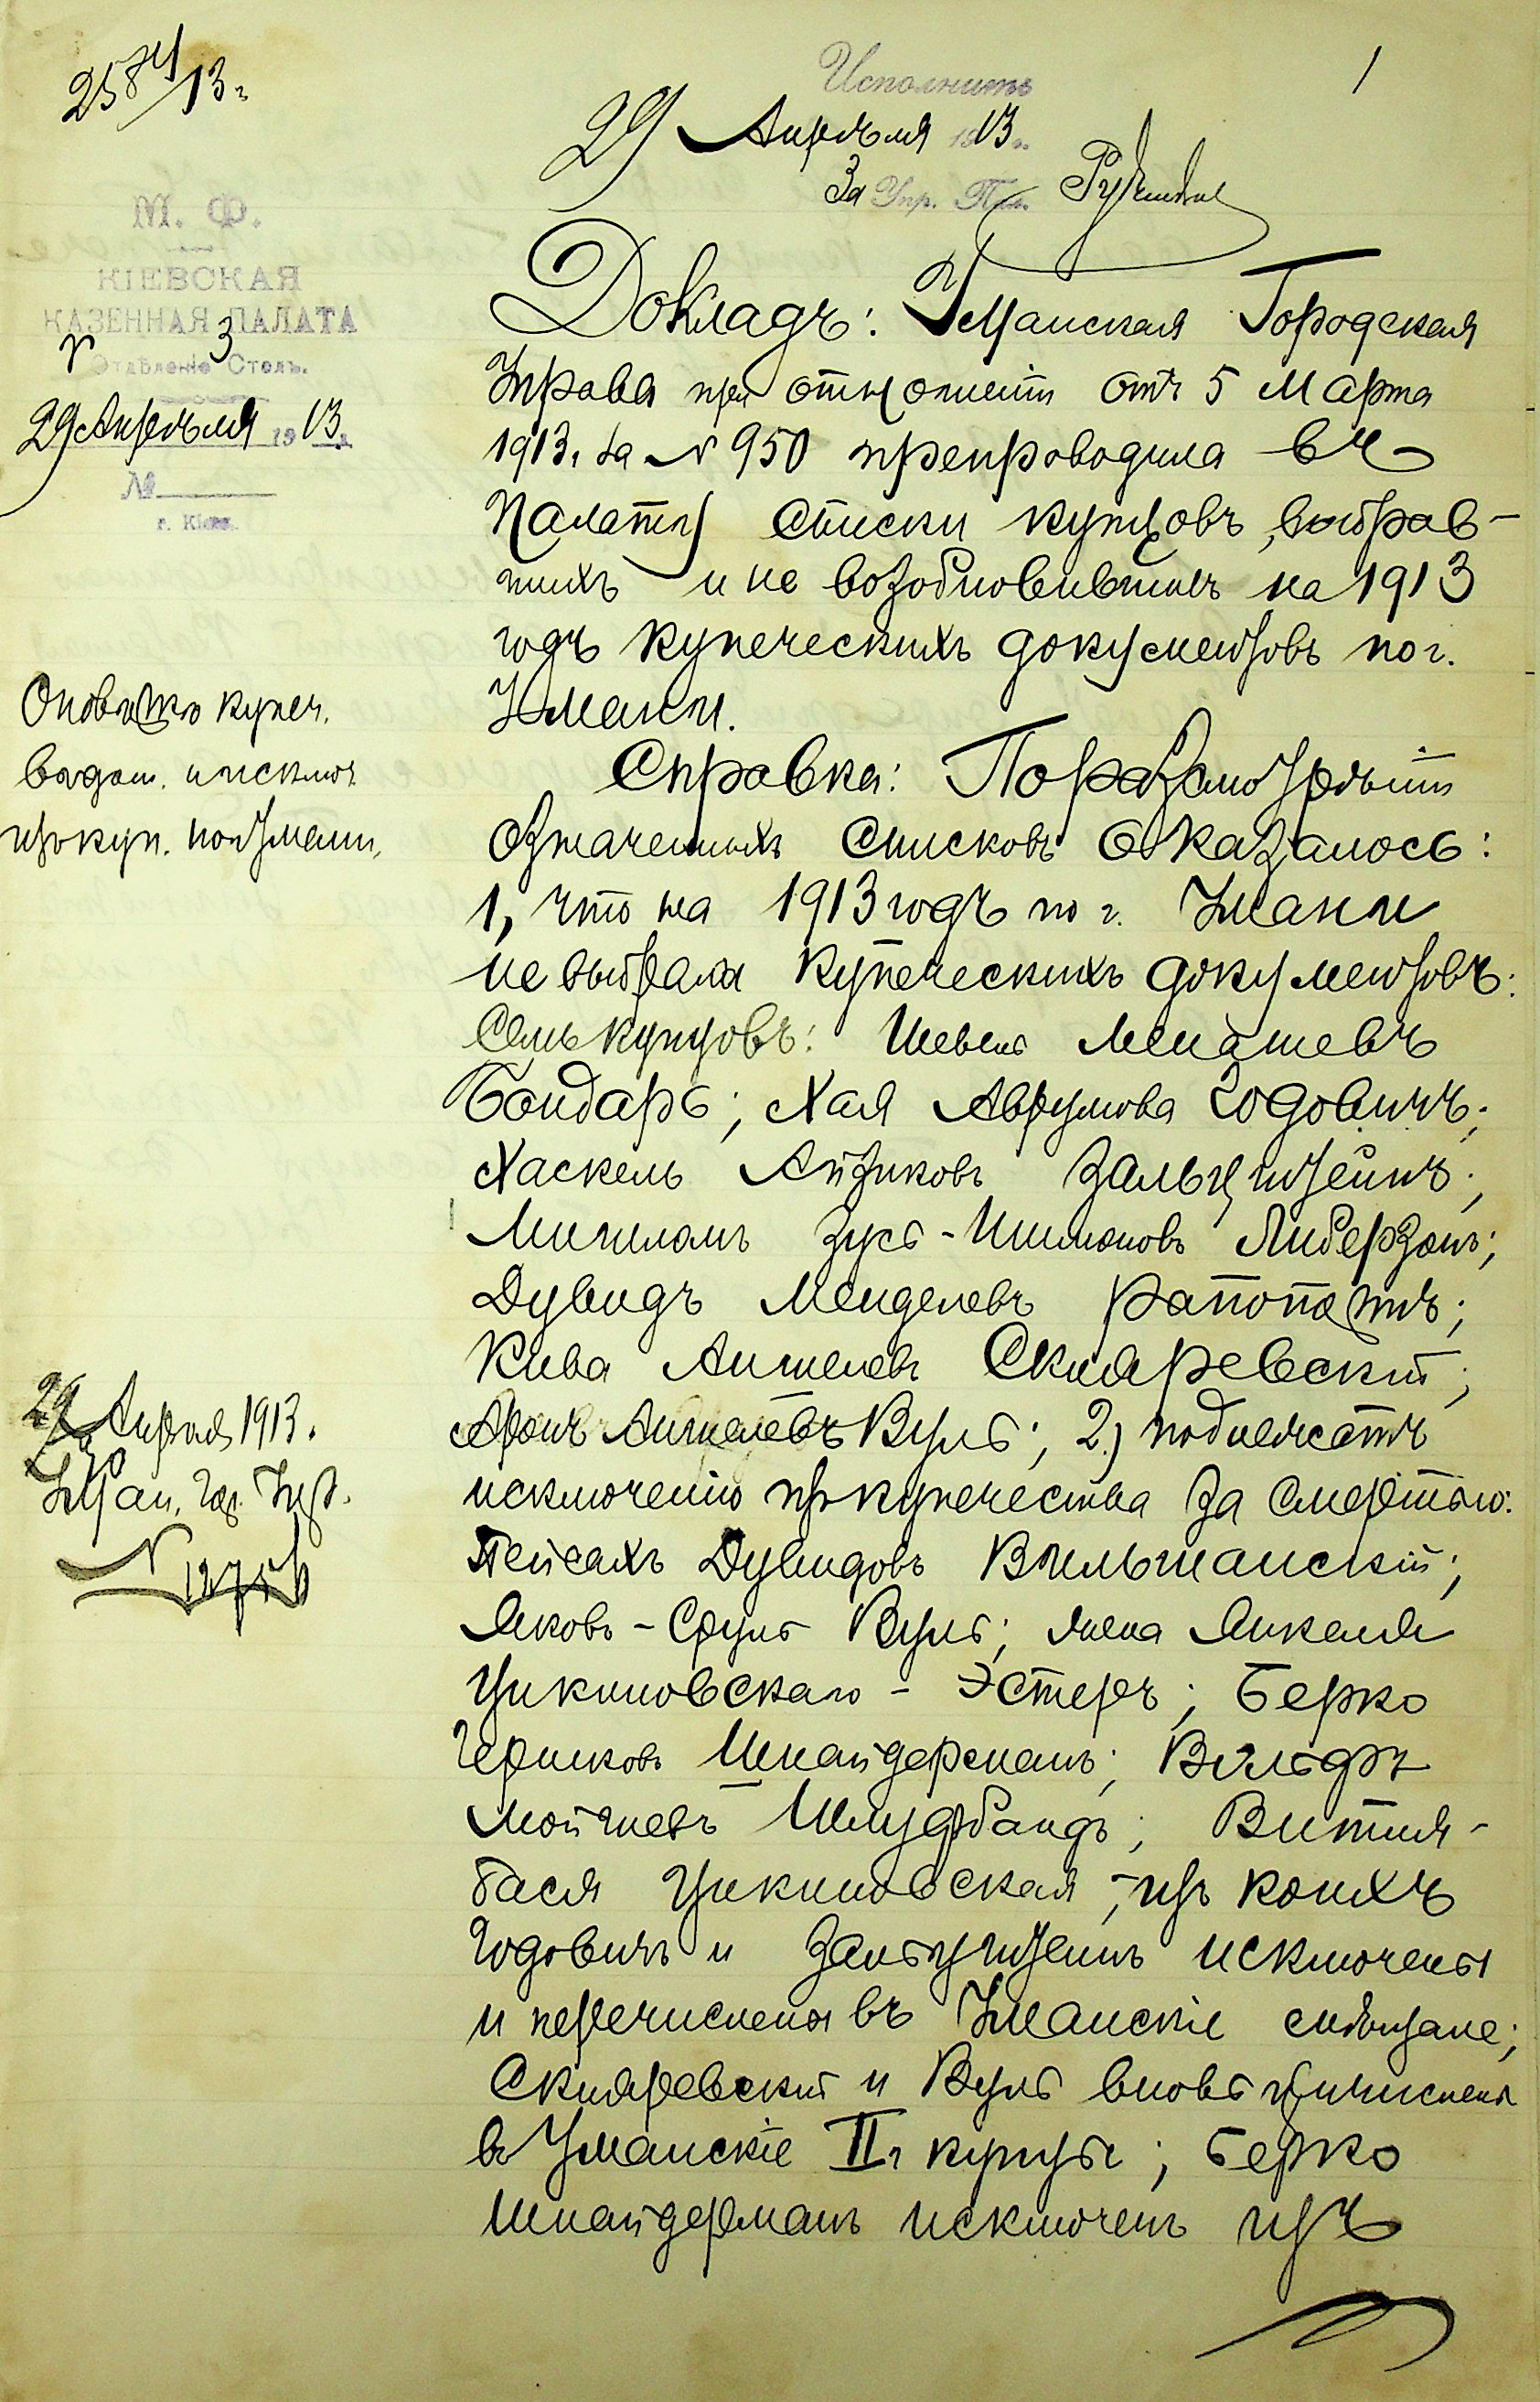 2584/13 г.
1
Исполнить
29 Апрѣля 1913 г.
За Упр. Пал.
М. Ф.
КІЕВСКАЯ
КАЗЕННАЯ ПАЛАТА
Отдѣленіе 3 Столъ.
29 Апрѣля 1913 г.
№
г. Кіевъ.
Докладъ: Уманская Городская
Управа при отношеніи отъ 5 Марта
1913 г. за № 950 препроводила въ
Палату списки купцовъ, выбрав-
шихъ и не возобновившихъ на 1913
годъ купеческихъ документовъ по г.
Умани.
О невзятіи купеч.
и исключ.
изъ куп. по г. Умани.
Справка: По разсмотрѣніи
означенныхъ списковъ оказалось:
1, что на 1913 годъ по г. Умани
не выбрали купеческихъ документовъ:
Семь купцовъ: Шевель Менашевъ
Бондарь; Хая Аврумова Годовичъ;
Хаскель Айзиковъ Зальцштейнъ;
Мигиламъ Зусь-Шимоновъ Либерзонъ;
Дувидъ Менделевъ Рапопортъ;
Кива Аншелевъ Скляревскій;
Аронъ Аншелевъ Вуль; 2) подлежатъ
исключенію изъ купечества за смертью:
Пейсахъ Дувидовъ Вильшанскій;
Яковъ-Сруль Вуль; жена Янкеля
Цикиновскаго - Эстеръ; Берко
Гершковъ Шнайдерманъ; Вольфъ
Мойшевъ Шлуфбандъ; Витля-
Бася Цикиновская; изъ коихъ
Годовичъ и Зальцштейнъ исключены
и перечислены въ Уманскіе мѣщане;
Скляревскій и Вуль вновь причислены
въ Уманскіе II г. купцы; Берко
Шнайдерманъ исключенъ изъ
29 Апрѣля 1913.
Уман. Гор. Упр.
№ 12756